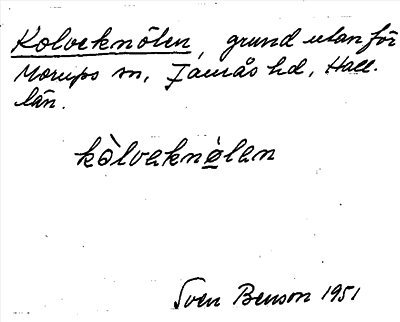 Kolveknölen, grund utanför
Morups sn, Faurås hd, Hall.
län.
kòlveknø̀len
Sven Benson 1951